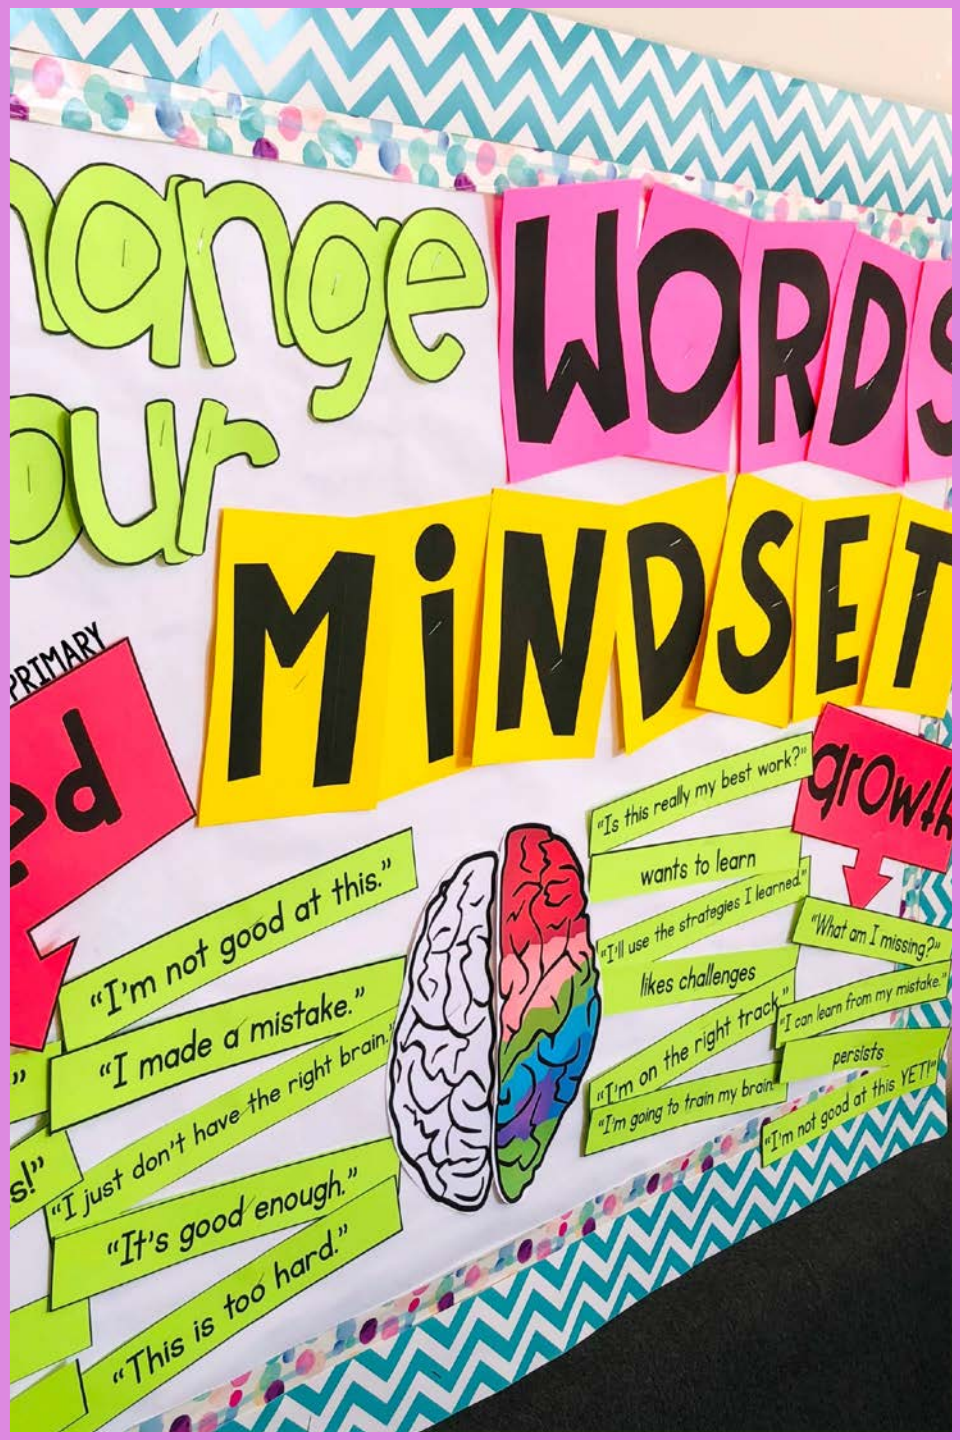 hange WORDS
our MiNDSET
PRIMARY
ed
"I'm not good at this."
"I made a mistake."
"I just don't have the right brain."
s!"
"It's good enough."
"This is too hard."
growth
"Is this really my best work?"
wants to learn
"I'll use the strategies I learned."
likes challenges
"I'm on the right track."
"I'm going to train my brain."
"What am I missing?"
"I can learn from my mistake."
persists
"I'm not good at this YET!"